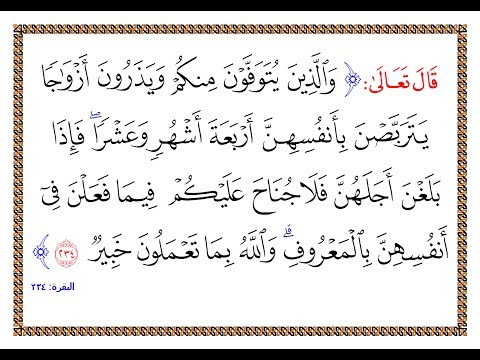 قَالَ تَعَالَىٰ: ﴿ وَٱلَّذِينَ يُتَوَفَّوْنَ مِنكُمْ وَيَذَرُونَ أَزْوَٰجًا
يَتَرَبَّصْنَ بِأَنفُسِهِنَّ أَرْبَعَةَ أَشْهُرٍ وَعَشْرًا ۖ فَإِذَا
بَلَغْنَ أَجَلَهُنَّ فَلَا جُنَاحَ عَلَيْكُمْ فِيمَا فَعَلْنَ فِىٓ
أَنفُسِهِنَّ بِٱلْمَعْرُوفِ ۗ وَٱللَّهُ بِمَا تَعْمَلُونَ خَبِيرٌ ٢٣٤ ﴾
البقرة: ٢٣٤